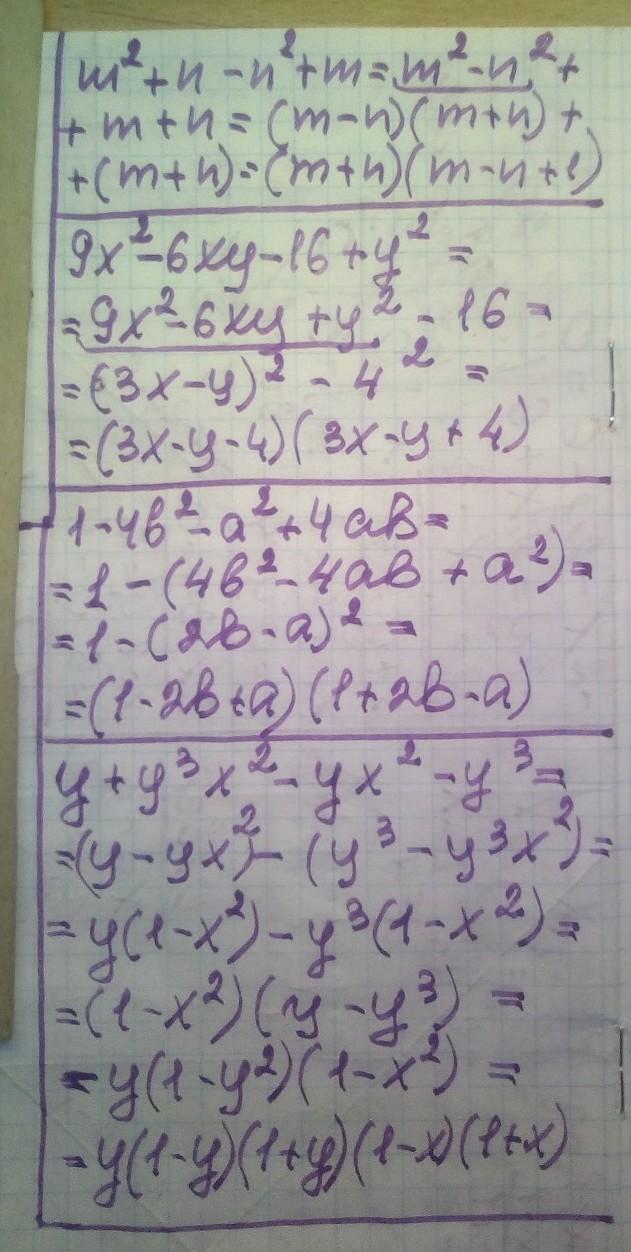 m²+n-n²+m=m²-n²+
+m+n=(m-n)(m+n)+
+(m+n)=(m+n)(m-n+1)
9x²-6xy-16+y²=
=9x²-6xy+y²-16=
=(3x-y)²-4²=
=(3x-y-4)(3x-y+4)
1-4b²-a²+4ab=
=1-(4b²-4ab+a²)=
=1-(2b-a)²=
=(1-2b+a)(1+2b-a)
y+y³x²-yx²-y³=
=(y-yx²)-(y³-y³x²)=
=y(1-x²)-y³(1-x²)=
=(1-x²)(y-y³)=
=y(1-y²)(1-x²)=
=y(1-y)(1+y)(1-x)(1+x)